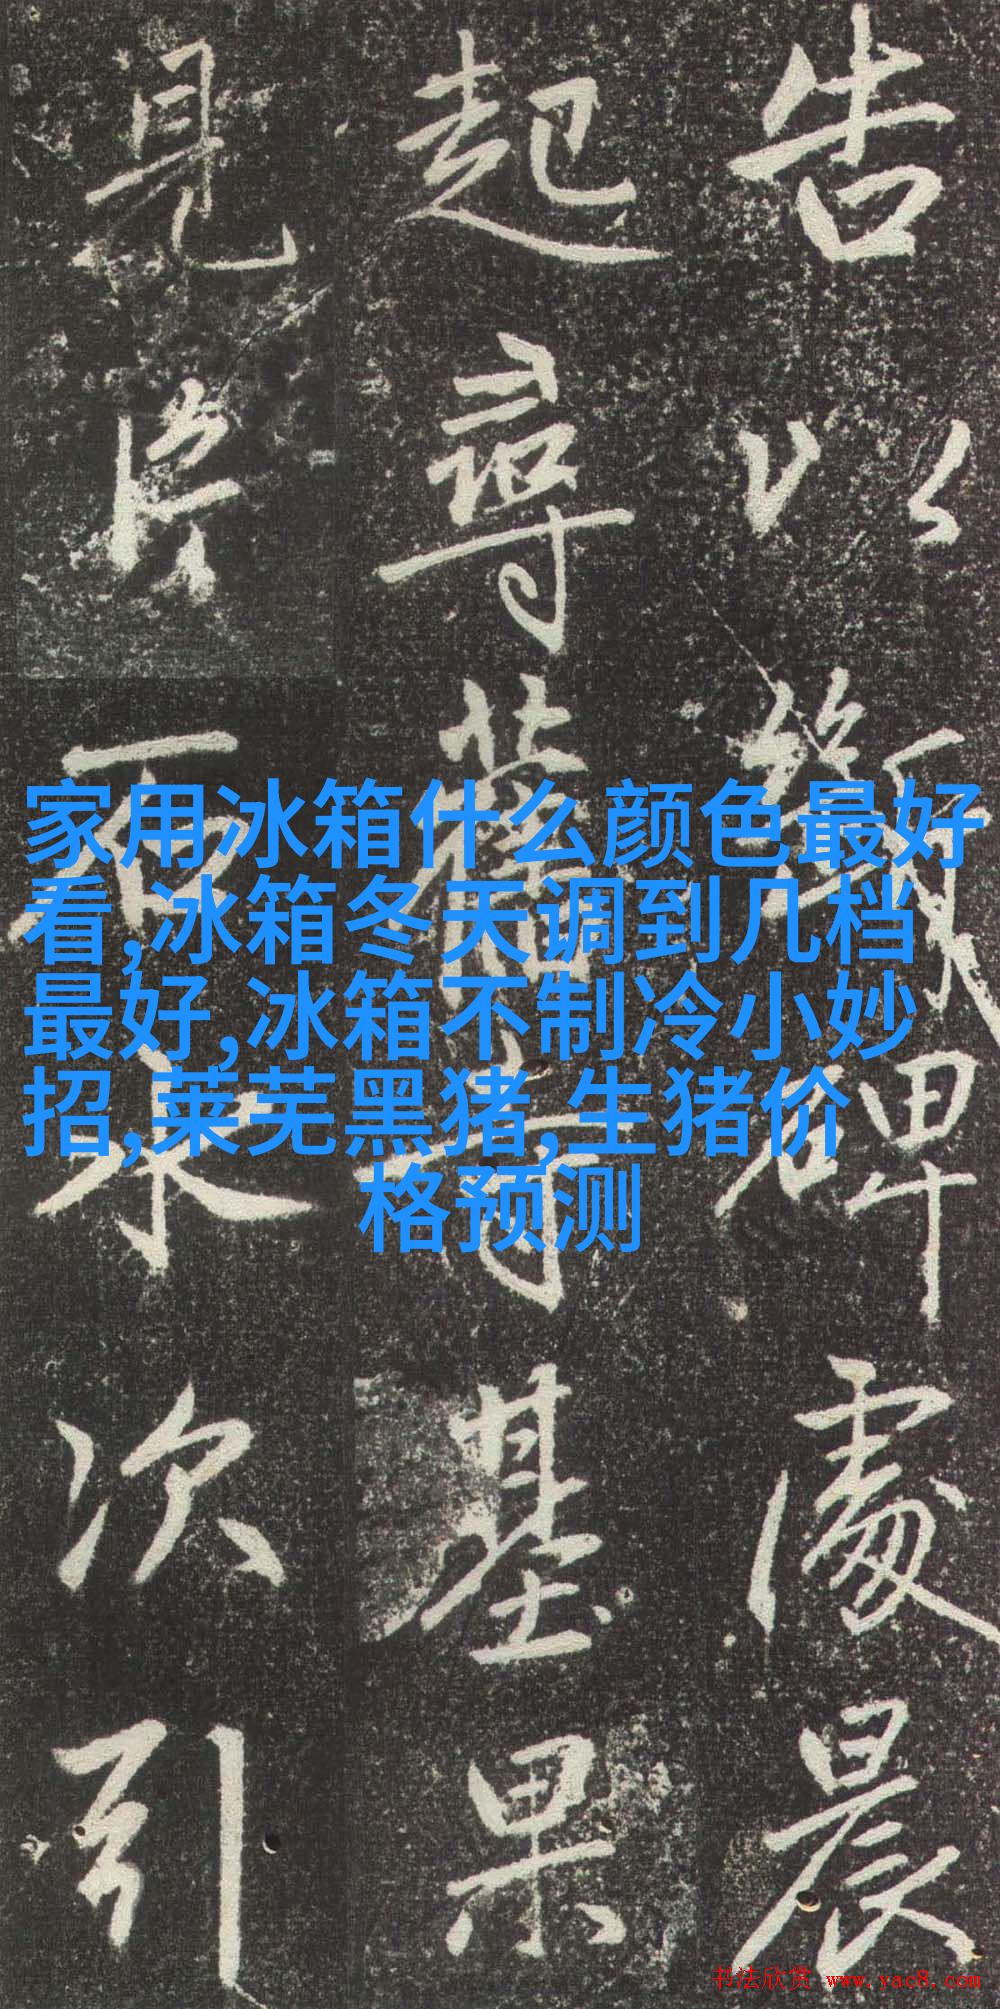 告以碑處晨
起尋舊寺基果
見片石水次引
家用冰箱什么颜色最好
看,冰箱冬天调到几档
最好,冰箱不制冷小妙
招,莱芜黑猪,生猪价
格预测
书法欣赏 www.yac8.com